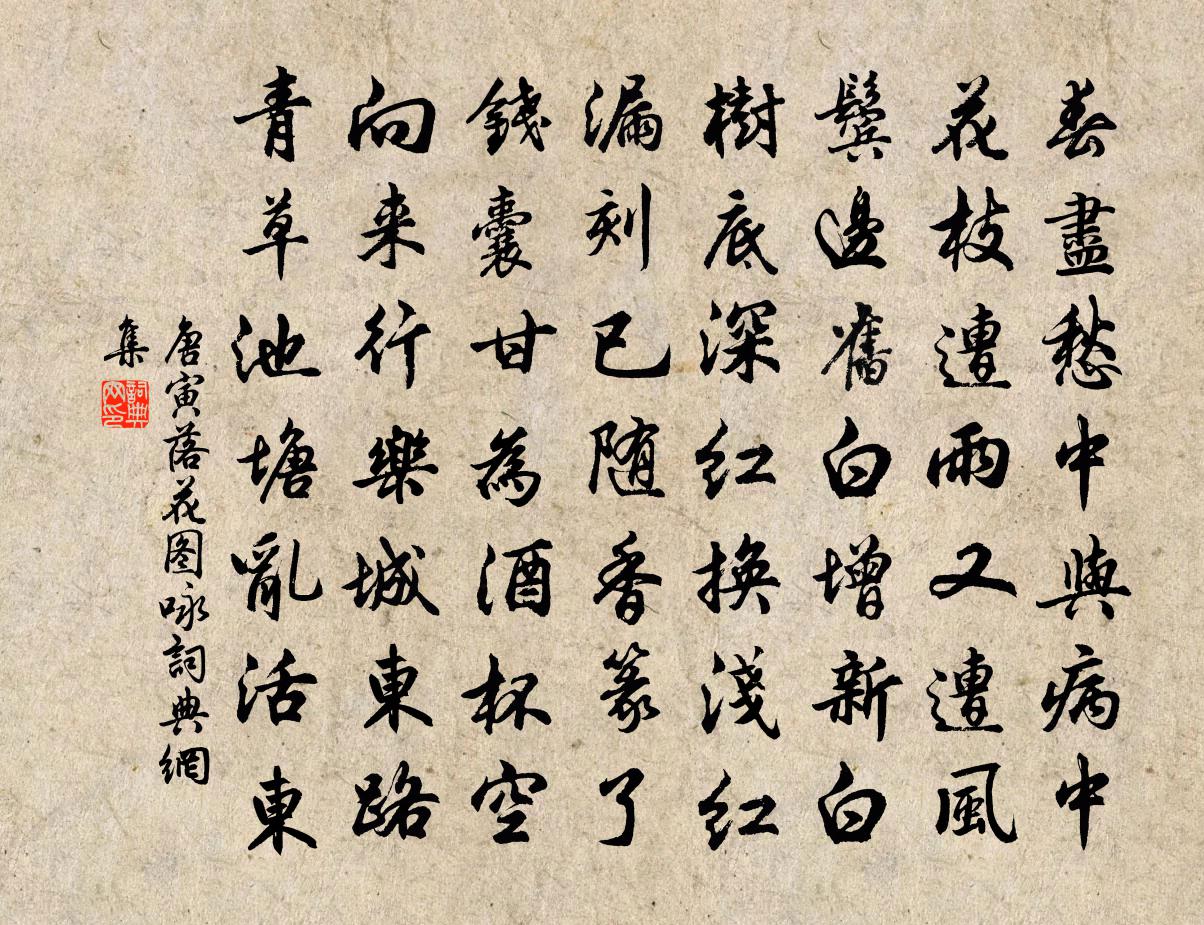 春盡愁中與病中
花枝遭雨又遭風
鬓邊舊白增新白
樹底深红換淺红
漏刻已随香篆了
錢囊甘為酒杯空
向来行樂城東路
青草池塘亂活東
唐寅落花图咏詞典網
集
詞典網印